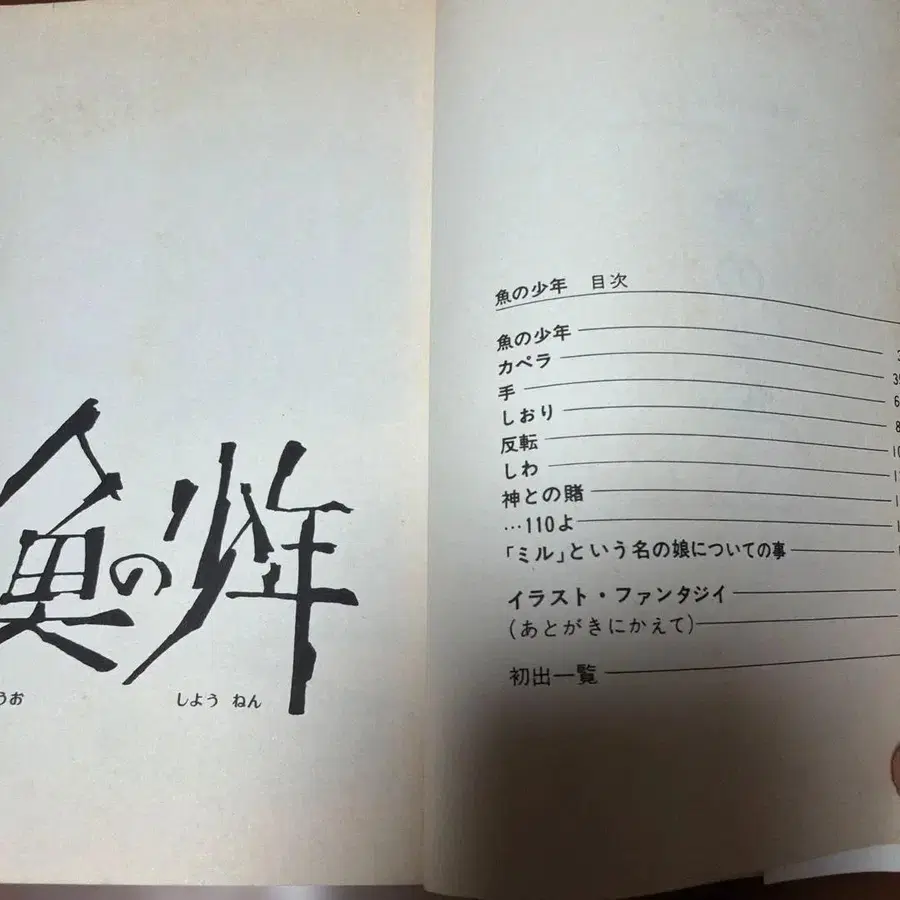 魚の少年
うお しよう ねん
魚の少年 目次
魚の少年 3
カペラ 39
手 6
しおり 8
反転 10
しわ 1
神との賭 1
…110よ 1
「ミル」という名の娘についての事
イラスト・ファンタジイ
(あとがきにかえて)
初出一覧